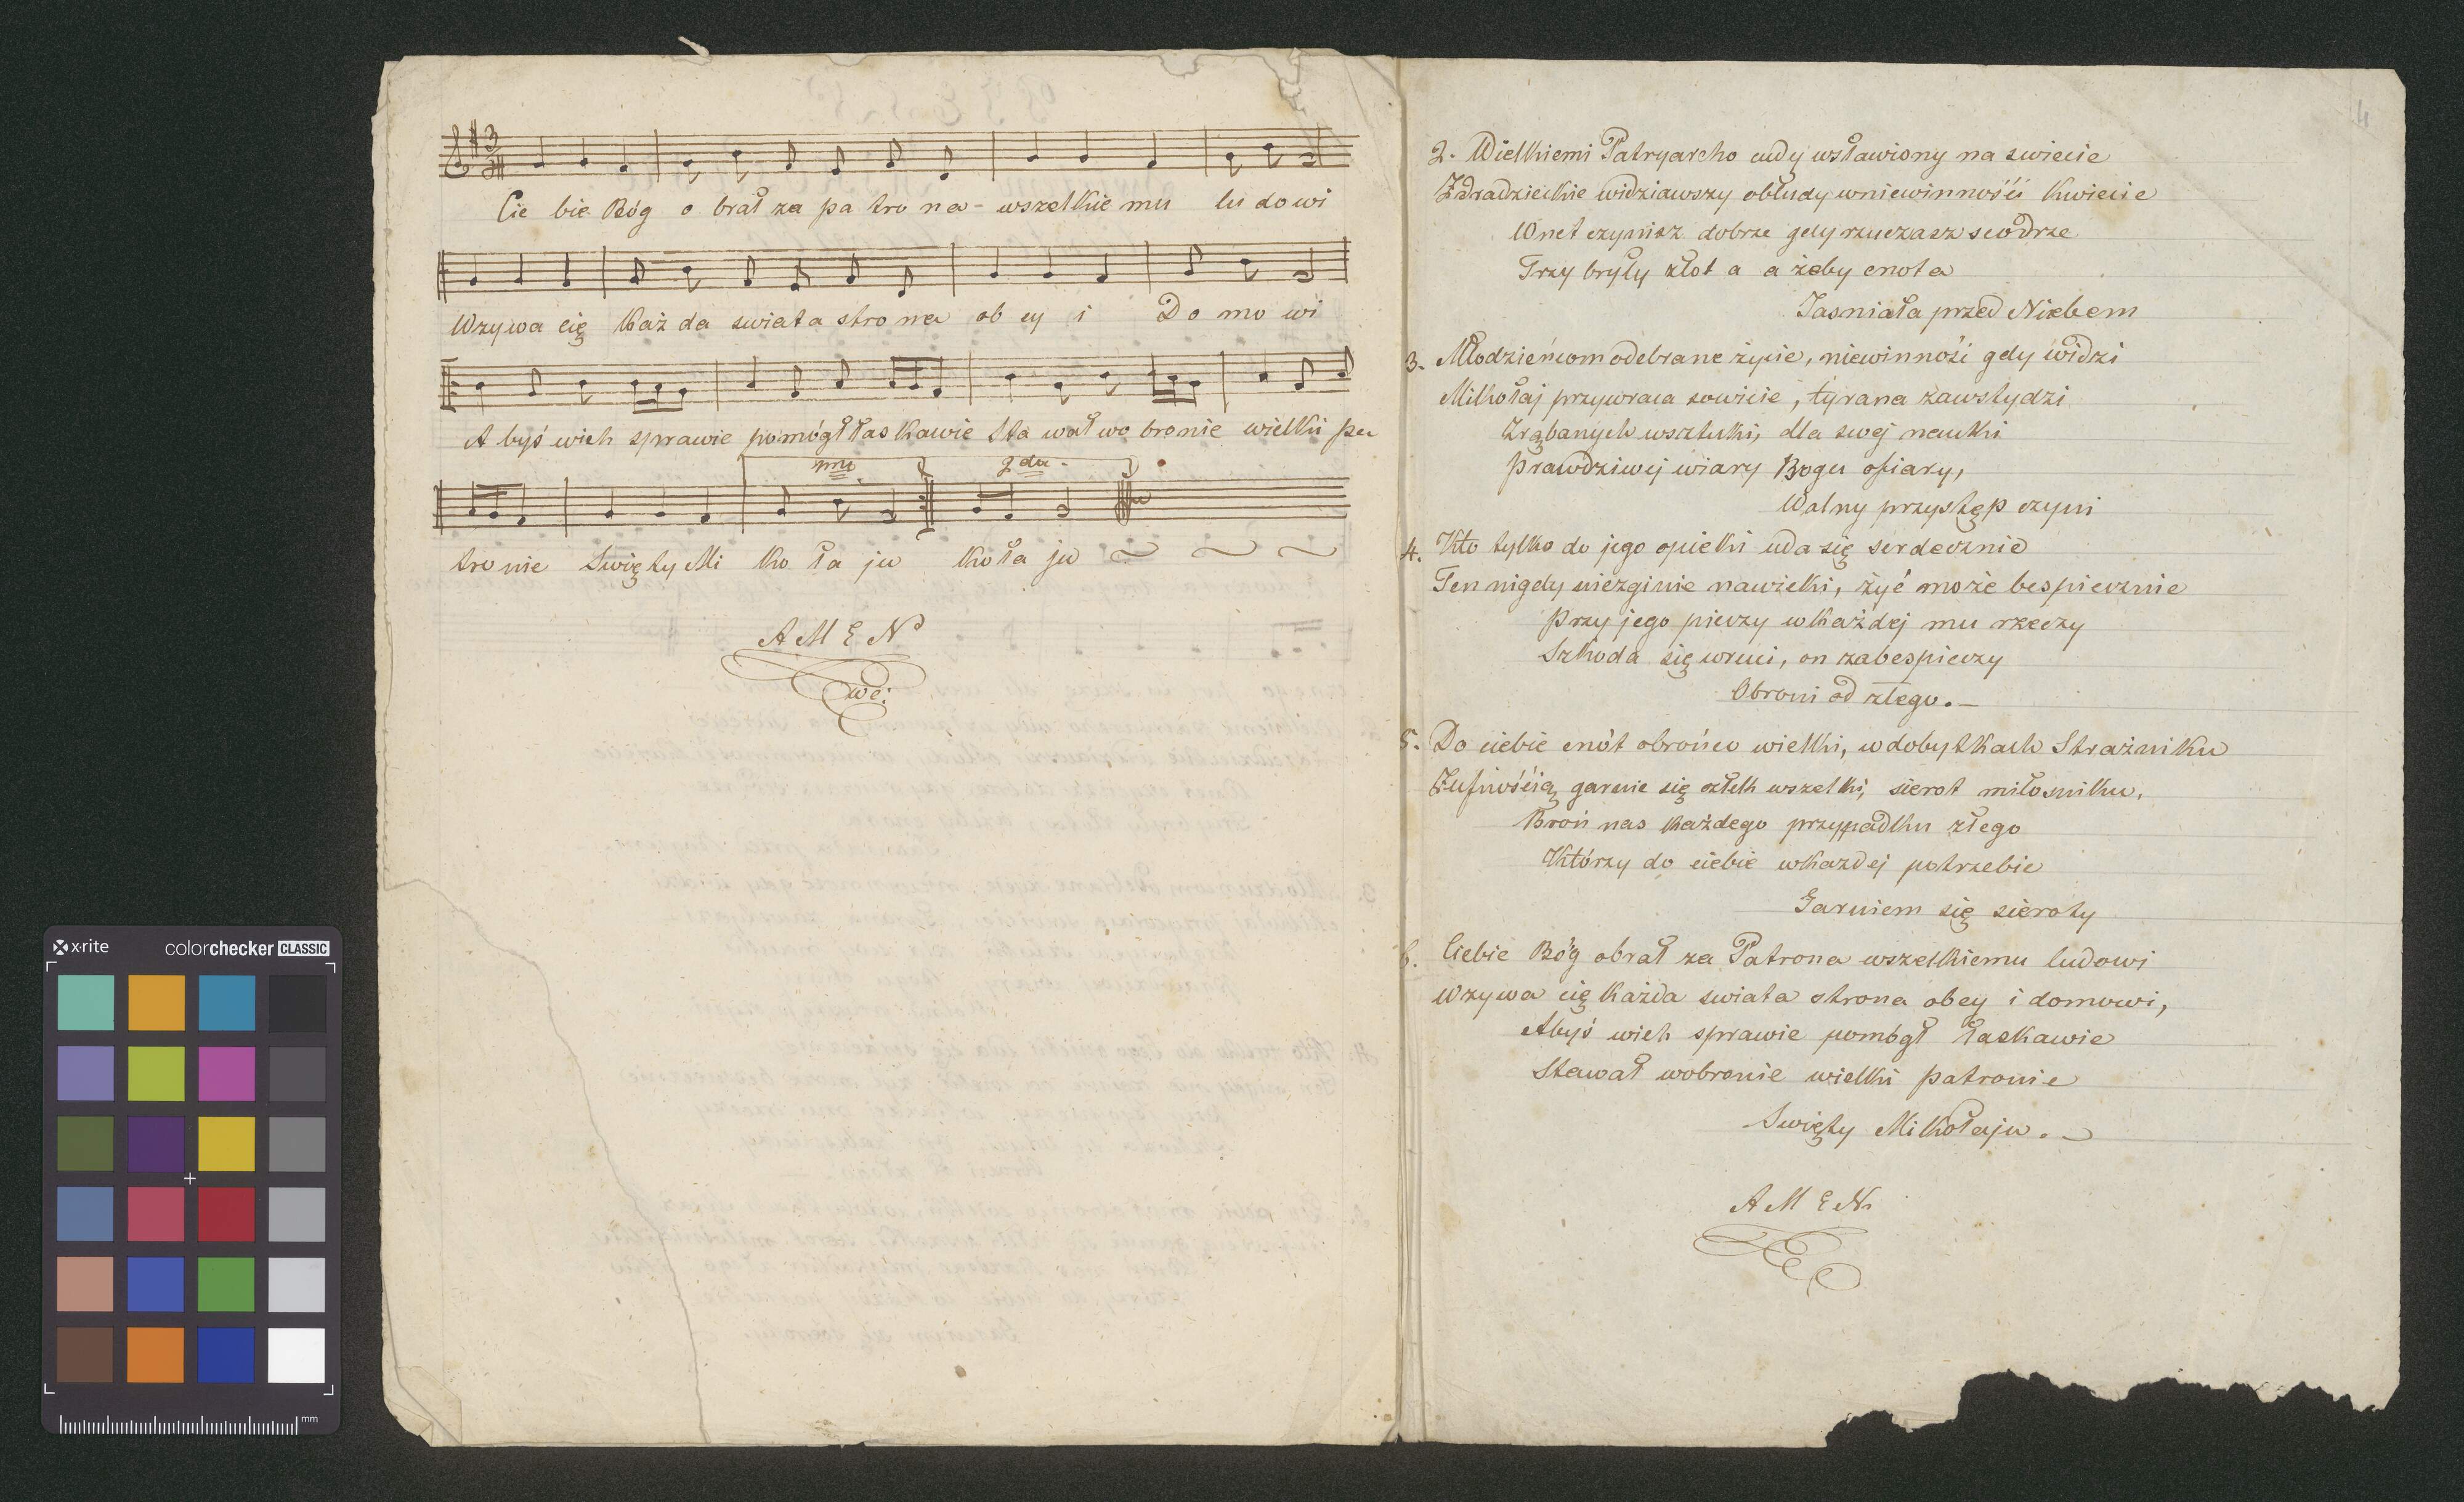 Cie bie Bóg o brał za pa tro na - wszelkie mu lu dowi
Wzywa cię Każ da swiata stro na ob cy i Do mo wi
A byś wich sprawie pomógł łas kawie Sta wał wo bronie wielki pa
1mo 2da.
tro nie Swię ty Mi ko ła ju Ko ła ju
AMEN
4
2. Wielkiemi Patryarcho cudy wsławiony na swiecie
Zdradzieckie widziawszy obłudy wniewinnośći Kwiecie
Wnet czynisz dobrze gdy rzuczasz
Trzy bryły złot a a żeby cnota
Jasniała przed Niebem
3. Młodzieńcom odebrane życie, niewinność gdy widzi
Mikołaj przywraca sowicie, tyrana zawstydzi
Zrąbanych wsztuki, dla swej nauki
Prawdziwej wiary Bogu ofiary,
Walny przystęp czyni
4. Kto tylko do jego opieki uda się serdecznie
Ten nigdy niezginie nawieki, żyć może bespiecznie
Przy jego pieczy wkażdej mu rzeczy
Szkoda się wruci, on zabespieczy
Obroni od złego. —
5. Do ciebie cnót obrońco wielki, wdobytkach Strażniku
Zufnośćią garnie się człek wszelki, sierot miłosniku,
Broń nas każdego przypadku złego
Którzy do ciebie wkazdej potrzebie
Garniem się sieroty
6. Ciebie Bóg obrał za Patrona wszelkiemu ludowi
Wzywa cię Każda swiata strona obcy i domowi,
Abyś wich sprawie pomógł łaskawie
Stawał wobronie wielki patronie
Swięty Mikołaju. —
AMEN
x·rite colorchecker CLASSIC
mm